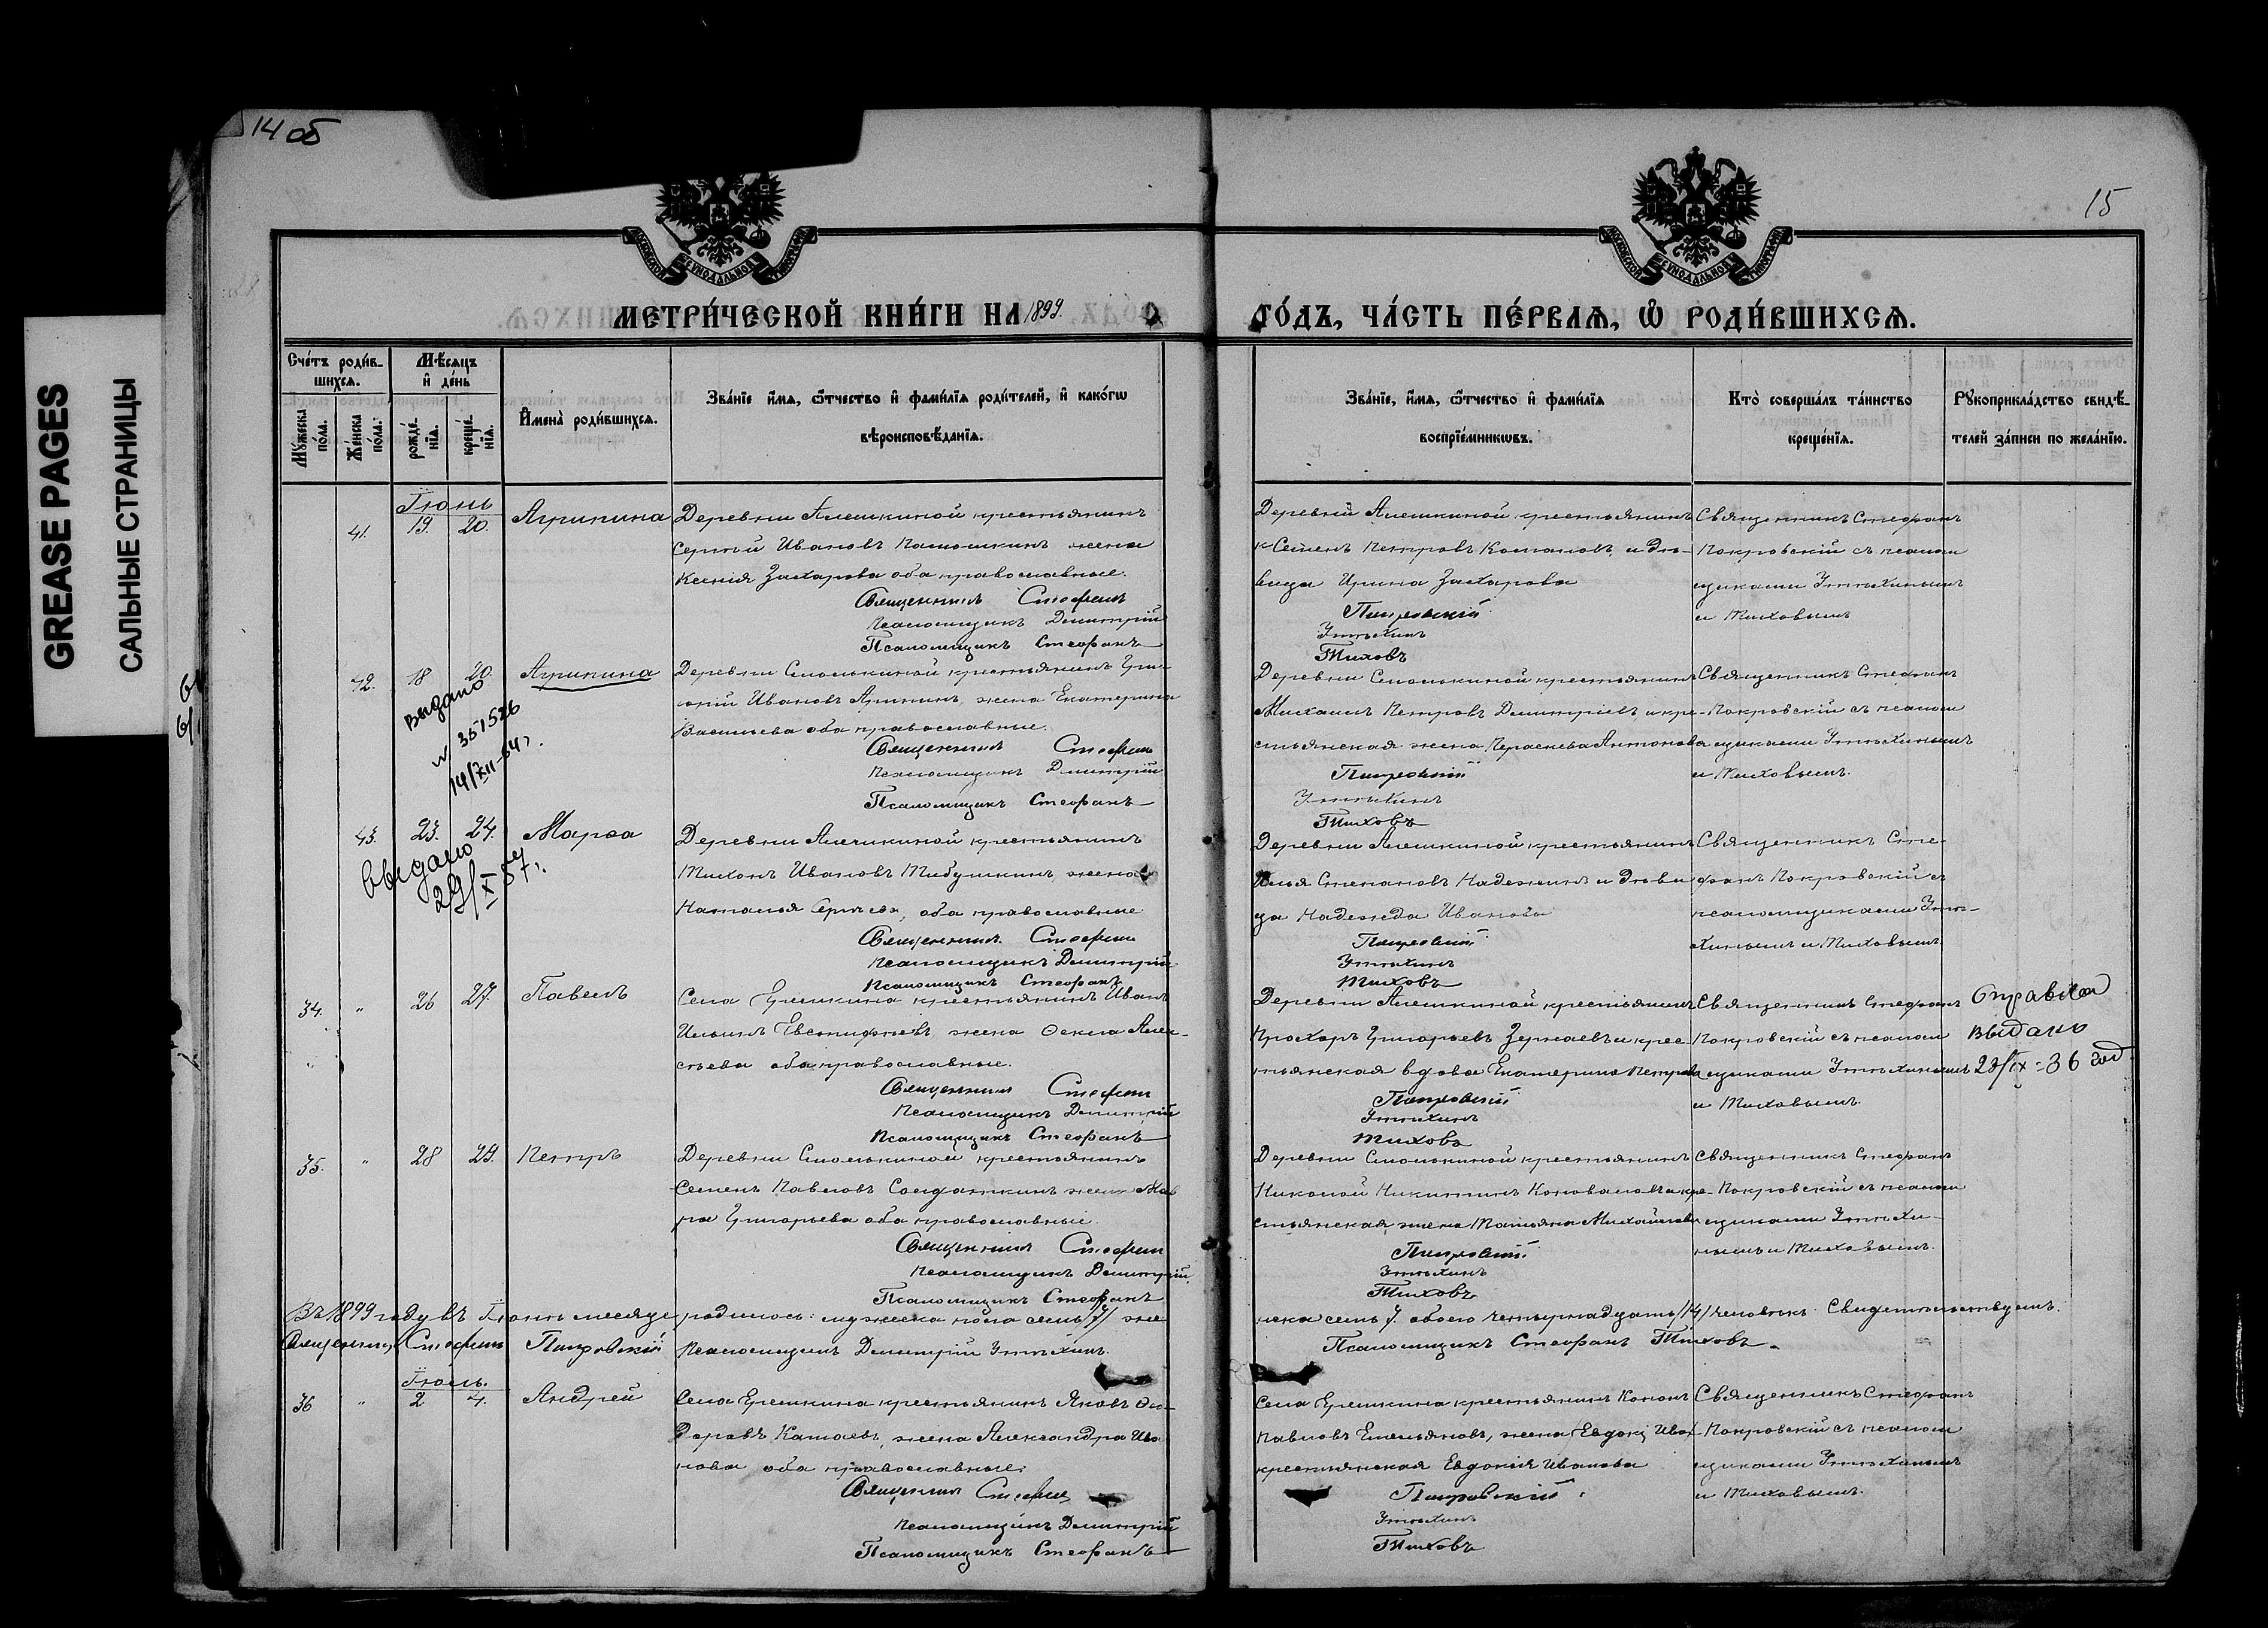 14 об
15
GREASE PAGES
САЛЬНЫЕ СТРАНИЦЫ
МОСКОВСКОЙ СѴНОДАЛЬНОЙ ТИПОГРАФІИ
МОСКОВСКОЙ СѴНОДАЛЬНОЙ ТИПОГРАФІИ
МЕТРИ́ЧЕСКОЙ КНИ́ГИ НА 1899.
ГО́ДЪ, ЧА́СТЬ ПЕ́РВАѦ, Ѡ҆ РОДИ́ВШИХСѦ.
Сче́тъ роди́в-
шихсѧ.
Мꙋ́жеска
по́ла.
Же́нска
по́ла.
Мѣ́сѧцъ
и҆ де́нь
рожде́-
нїѧ.
креще́-
нїѧ.
И҆мена̀ роди́вшихсѧ.
Зва́нїе и҆́мѧ, ѻ҆́тчество и҆ фами́лїѧ роди́телей, и҆ како́гѡ
вѣроисповѣ́данїѧ.
Зва́нїе, и҆́мѧ, ѻ҆́тчество и҆ фами́лїѧ
воспрїе́мникѡвъ.
Кто̀ соверша́лъ та́инство
креще́нїѧ.
Рꙋкоприкла́дство свидѣ́-
телей за́писи по жела́нїю.
Іюнь
41. 19. 20. Агрипина
Деревни Алешкиной крестьянинъ
Сергѣй Ивановъ жена
Ксенія Захарова оба православные.
Священникъ Стефанъ
Псаломщикъ Димитрій
Псаломщикъ Стефанъ
Деревни Алешкиной крестьянинъ
Семенъ Петровъ и дѣ-
вица Ирина Захарова
Покровскій
Утѣхинъ
Тиховъ
Священникъ Стефанъ
Покровскій съ псалом
щиками Утѣхинымъ
и Тиховымъ
42. 18 20. Агрипина
выдано
№ 351526
14/XII-54г.
Деревни Смолькиной крестьянинъ Гри-
горій Ивановъ жена Екатерина
Васильева оба православные.
Священникъ Стефанъ
Псаломщикъ Димитрій
Псаломщикъ Стефанъ
Деревни Смолькиной крестьянинъ
Михаилъ Петровъ Димитріевъ и кре-
стьянская жена Антонова
Покровскій
Утѣхинъ
Тиховъ
Священникъ Стефанъ
Покровскій съ псалом
щиками Утѣхинымъ
и Тиховымъ.
43. 23. 24. Марѳа
Выдано
29/X 57г.
Деревни Алешкиной крестьянинъ
Тихонъ Ивановъ жена
Наталья Сергѣева, оба православные
Священникъ Стефанъ
Псаломщикъ Димитрій
Псаломщикъ Стефанъ
Деревни Алешкиной крестьянинъ
Илья Степановъ и дѣви
ца Надежда Иванова
Покровскій
Утѣхинъ
Тиховъ
Священникъ Сте-
фанъ Покровскій съ
псаломщиками Утѣ-
хинымъ и Тиховымъ
34. " 26 27. Павелъ
Села Ерешкина крестьянинъ Иванъ
Ильинъ жена Ѳекла Алек-
сѣева оба православные.
Священникъ Стефанъ
Псаломщикъ Димитрій
Псаломщикъ Стефанъ
Деревни Алешкиной крестьянинъ
Прохоръ Григорьевъ и крес-
тьянская вдова Екатерина Петрова
Покровскій
Утѣхинъ
Тиховъ
Священникъ Стефанъ
Покровскій съ псалом
щиками Утѣхинымъ
и Тиховымъ.
Справка
выдано
23/IX-36 год
35. " 28 29. Петръ
Деревни Смолькиной крестьянинъ
Семенъ Павловъ Солдаткинъ жена Мав
ра Григорьева оба православные
Священникъ Стефанъ
Псаломщикъ Димитрій
Псаломщикъ Стефанъ
Деревни Смолькиной крестьянинъ
Николай Никитинъ Коноваловъ и кре-
стьянская жена Татьяна Михайлова
Покровскій
Утѣхинъ
Тиховъ
Священникъ Стефанъ
Покровскій съ псалом
щиками Утѣхи-
нымъ и Тиховымъ.
Въ 1899 году въ Іюнѣ месяце родилось: мужеска пола семь /7/ же
нска семь 7. обоего четырнадцать /14/ человѣкъ. Свидетельствуемъ.
Священникъ Стефанъ Покровскій Псаломщикъ Димитрій Утѣхинъ.
Псаломщикъ Стефанъ Тиховъ.
Іюль.
36 " 2 4. Андрей
Села Ерешкина крестьянинъ Яковъ Ѳе-
доровъ Катаевъ, жена Александра Ива
нова оба православные.
Священникъ Стефанъ
Псаломщикъ Димитрій
Псаломщикъ Стефанъ
Села Ерешкина крестьянинъ Кононъ
Павловъ Емельяновъ, жена Евдокі Ива
крестьянская Евдокія Иванова
Покровскій
Утѣхинъ
Тиховъ
Священникъ Стефанъ
Покровскій съ псалом
щиками Утѣхинымъ
и Тиховымъ.